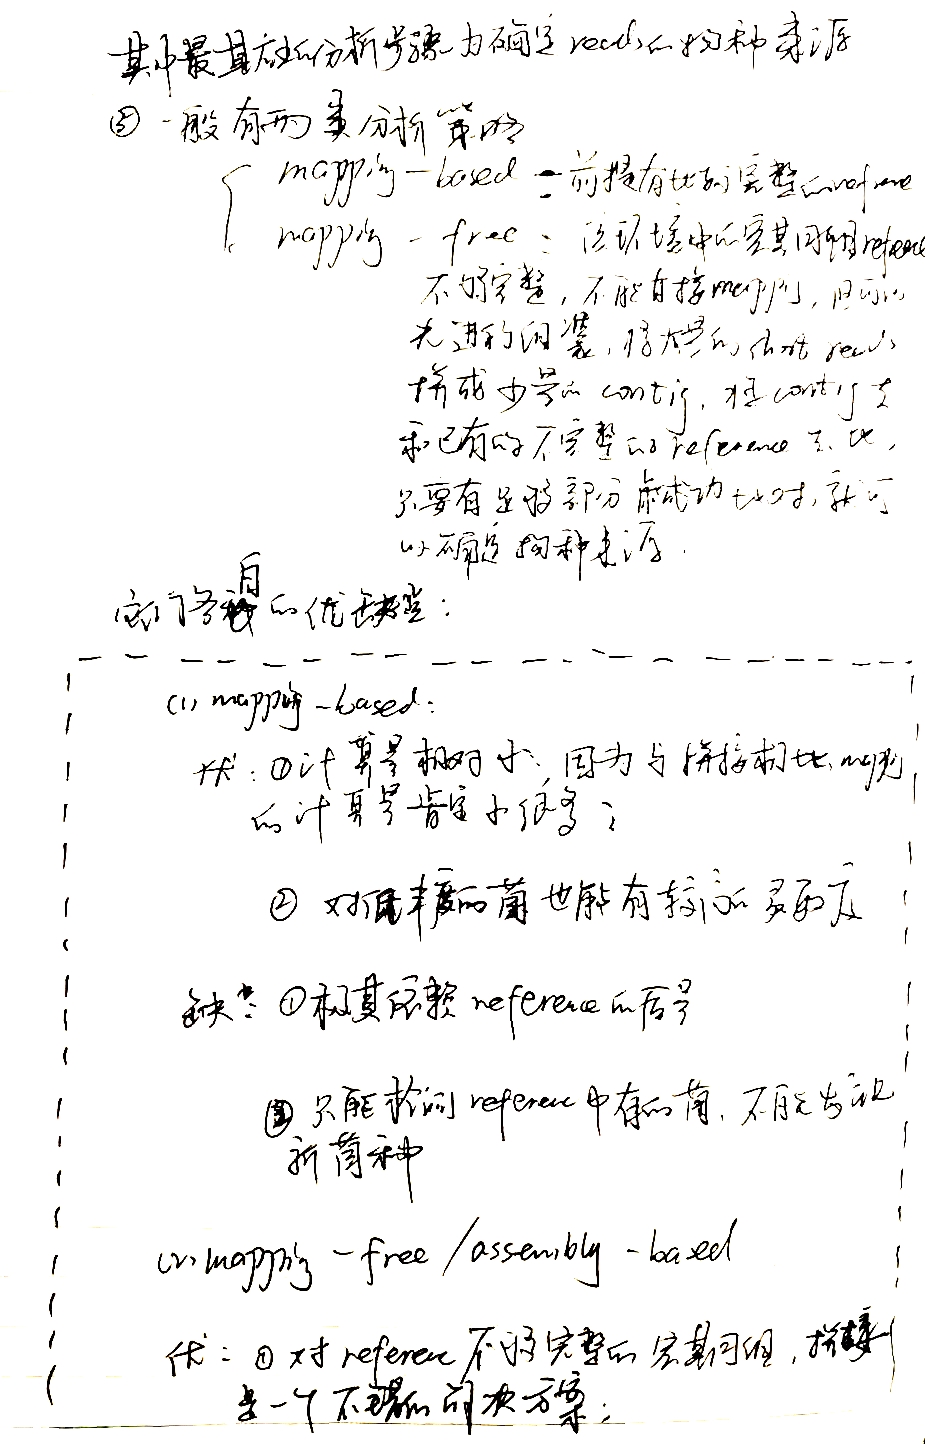 其中最基础的分析步骤为确定reads的物种来源
⑤ 一般有两类分析策略
mapping-based : 前提有比较完整的reference
mapping - free : 该环境中的宏基因组reference
不够完整, 不能直接mapping, 但可以
先进行组装, 将大量的short reads
拼成少量的contig, 拿contig去
和已有的不完整的reference去比,
只要有足够部分能成功比对, 就可
以确定物种来源.
它们各自的优缺点:
(1) mapping-based:
优: ①计算量相对小, 因为与拼接相比, mapping
的计算量肯定小很多;
② 对低丰度的菌也能有较高的灵敏度
缺点: ①极其依赖reference的质量
② 只能检测reference中有的菌, 不能发现
新菌种
(2) mapping-free/assembly-based
优: ① 对reference不够完整的宏基因组, 拼接
是一个不错的解决方案;